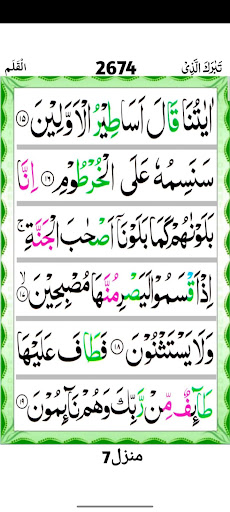 تَبٰرَكَ الَّذِیْ 2674 الْقَلَم
اٰیٰتُنَا قَالَ اَسَاطِیْرُ الْاَوَّلِیْنَ ۝۱۵
سَنَسِمُهٗ عَلَی الْخُرْطُوْمِ ۝۱۶ اِنَّا
بَلَوْنٰهُمْ كَمَا بَلَوْنَاۤ اَصْحٰبَ الْجَنَّةِ ۚ
اِذْ اَقْسَمُوْا لَیَصْرِمُنَّهَا مُصْبِحِیْنَ ۝۱۷
وَلَا یَسْتَثْنُوْنَ ۝۱۸ فَطَافَ عَلَیْهَا
طَآىِٕفٌ مِّنْ رَّبِّكَ وَهُمْ نَآىِٕمُوْنَ ۝۱۹
منزل7